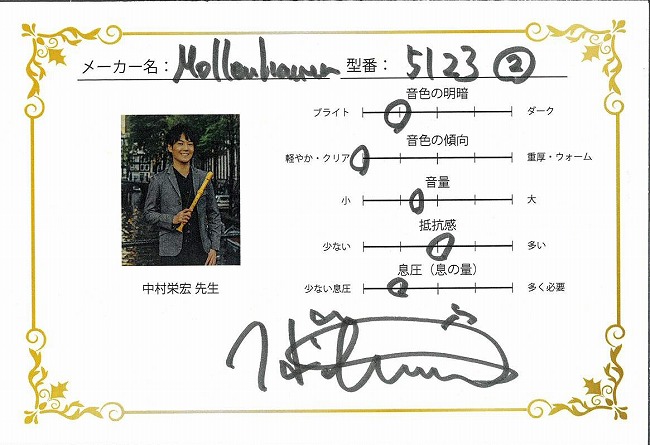 メーカー名：Mollenhauer 型番：5123 ②
音色の明暗
ブライト ダーク
音色の傾向
軽やか・クリア 重厚・ウォーム
音量
小 大
抵抗感
少ない 多い
息圧（息の量）
少ない息圧 多く必要
中村栄宏 先生